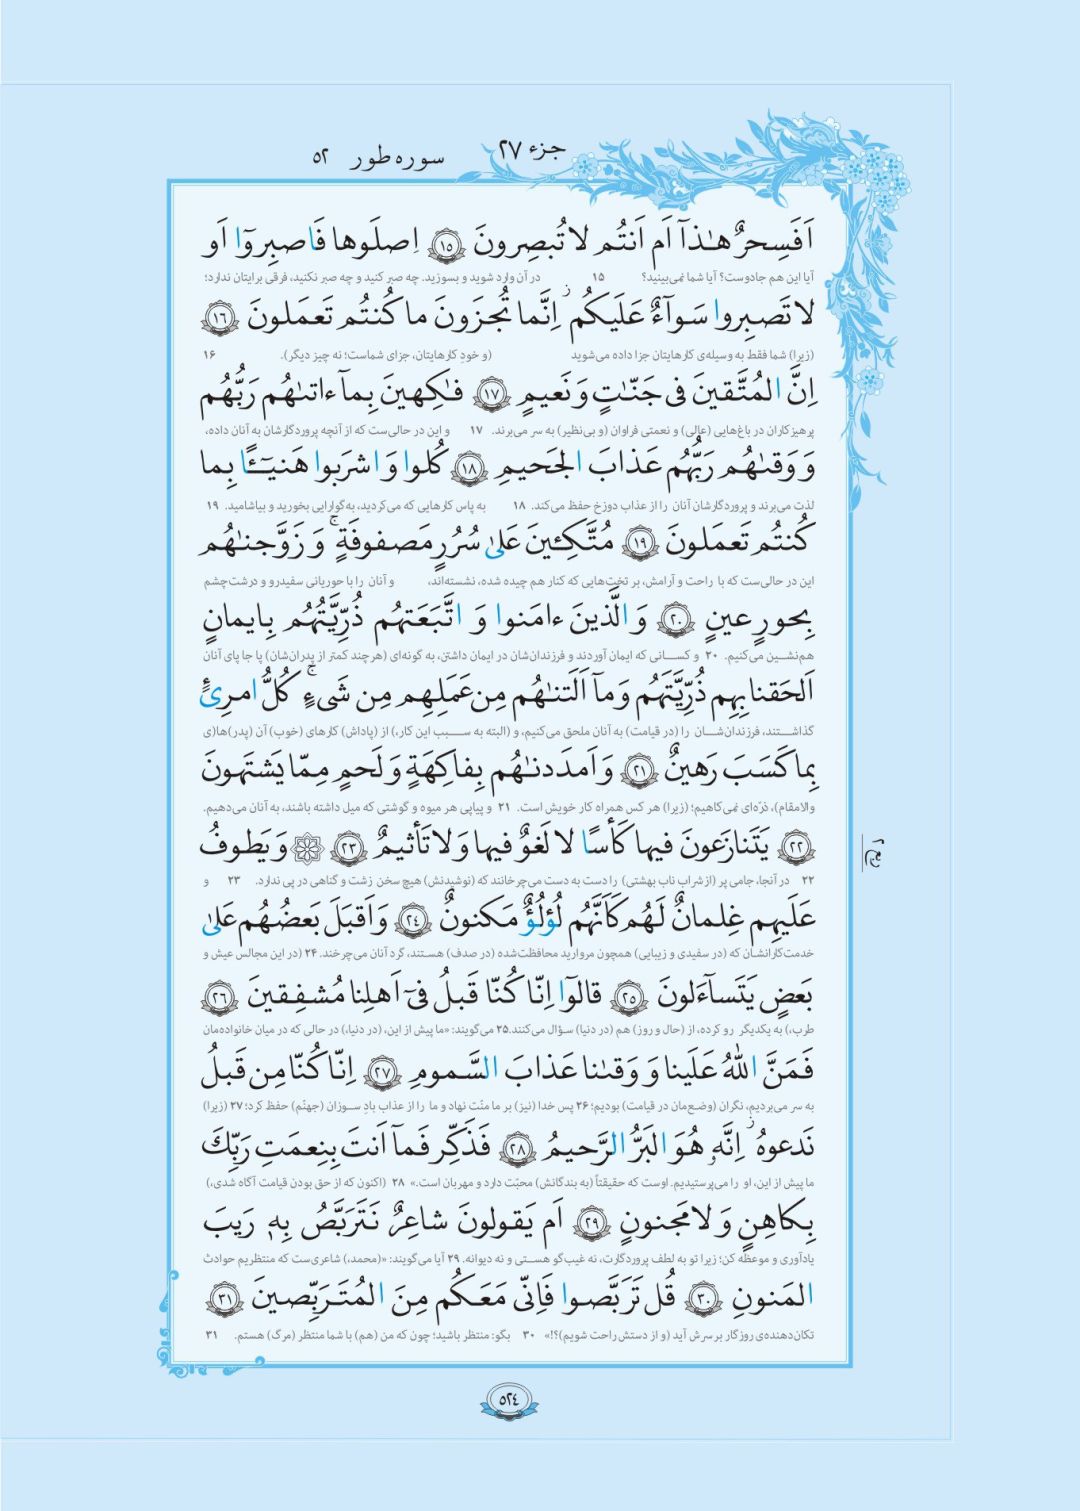 جزء ۲۷
سوره طور ۵۲
اَفَسِحرٌ هٰذآ اَم اَنتُم لا تُبصِرونَ ﴿١٥﴾ اِصلَوها فَاصبِروٓا اَو
آیا این هم جادوست؟ آیا شما نمی‌بینید؟ ۱۵ در آن وارد شوید و بسوزید. چه صبر کنید و چه صبر نکنید، فرقی برایتان ندارد؛
لا تَصبِروا سَوآءٌ عَلَيكُم ۖ اِنَّما تُجزَونَ ما كُنتُم تَعمَلونَ ﴿١٦﴾
(زیرا) شما فقط به وسیله‌ی کارهایتان جزا داده می‌شوید (و خودِ کارهایتان، جزای شماست؛ نه چیز دیگر). ۱۶
اِنَّ المُتَّقينَ فى جَنّٰتٍ وَ نَعيمٍ ﴿١٧﴾ فٰكِهينَ بِمآ ءاتىٰهُم رَبُّهُم
پرهیزکاران در باغ‌هایی (عالی) و نعمتی فراوان (و بی‌نظیر) به سر می‌برند. ۱۷ و این در حالی‌ست که از آنچه پروردگارشان به آنان داده،
وَ وَقىٰهُم رَبُّهُم عَذابَ الجَحيمِ ﴿١٨﴾ كُلوا وَ اشرَبوا هَنيٓـًٔا بِما
لذت می‌برند و پروردگارشان آنان را از عذاب دوزخ حفظ می‌کند. ۱۸ به پاس کارهایی که می‌کردید، به‌گوارایی بخورید و بیاشامید. ۱۹
كُنتُم تَعمَلونَ ﴿١٩﴾ مُتَّكِـٔينَ عَلىٰ سُرُرٍ مَصفوفَةٍ ۚ وَ زَوَّجنٰهُم
این در حالی‌ست که با راحت و آرامش، بر تخت‌هایی که کنار هم چیده شده، نشسته‌اند، و آنان را با حوریانی سفیدرو و درشت‌چشم
بِحورٍ عينٍ ﴿٢٠﴾ وَ الَّذينَ ءامَنوا وَ اتَّبَعَتهُم ذُرِّيَّتُهُم بِايمانٍ
هم‌نشین می‌کنیم. ۲۰ و کسانی که ایمان آوردند و فرزندان‌شان در ایمان داشتن، به گونه‌ای (هر چند کمتر از پدران‌شان) پا جا پای آنان
اَلحَقنا بِهِم ذُرِّيَّتَهُم وَ مآ اَلَتنٰهُم مِن عَمَلِهِم مِن شَىءٍ ۚ كُلُّ امرِئٍ
گذاشتند، فرزندان‌شان را (در قیامت) به آنان ملحق می‌کنیم، و (البته به سبب این کار،) از (پاداش) کارهای (خوب) آن (پدر)ها(ی
بِما كَسَبَ رَهينٌ ﴿٢١﴾ وَ اَمدَدنٰهُم بِفاكِهَةٍ وَ لَحمٍ مِمّا يَشتَهونَ
والامقام)، ذرّه‌ای نمی‌کاهیم؛ (زیرا) هر کس همراه کار خویش است. ۲۱ و پیاپی هر میوه و گوشتی که میل داشته باشند، به آنان می‌دهیم.
﴿٢٢﴾ يَتَنازَعونَ فيها كَأسًا لا لَغوٌ فيها وَ لا تَأثيمٌ ﴿٢٣﴾ ۞ وَ يَطوفُ
۲۲ در آنجا، جامی پر (از شراب ناب بهشتی) را دست به دست می‌چرخانند که (نوشیدنش) هیچ سخن زشت و گناهی در پی ندارد. ۲۳ و
ربع ٢
عَلَيهِم غِلمانٌ لَهُم كَاَنَّهُم لُؤلُؤٌ مَكنونٌ ﴿٢٤﴾ وَ اَقبَلَ بَعضُهُم عَلىٰ
خدمت‌کارانشان که (در سفیدی و زیبایی) همچون مروارید محافظت‌شده (در صدف) هستند، گرد آنان می‌چرخند. ۲۴ (در این مجالس عیش و
بَعضٍ يَتَسآءَلونَ ﴿٢٥﴾ قالوٓا اِنّا كُنّا قَبلُ فىٓ اَهلِنا مُشفِقينَ ﴿٢٦﴾
طرب،) به یکدیگر رو کرده، از (حال و روز) هم (در دنیا) سؤال می‌کنند.۲۵ می‌گویند: «ما پیش از این، (در دنیا،) در حالی که در میان خانواده‌مان
فَمَنَّ اللهُ عَلَينا وَ وَقىٰنا عَذابَ السَّمومِ ﴿٢٧﴾ اِنّا كُنّا مِن قَبلُ
به سر می‌بردیم، نگران (وضع‌مان در قیامت) بودیم؛ ۲۶ پس خدا (نیز) بر ما منّت نهاد و ما را از عذاب بادِ سوزان (جهنّم) حفظ کرد؛ ۲۷ (زیرا)
نَدعوهُ ۖ اِنَّهو هُوَ البَرُّ الرَّحيمُ ﴿٢٨﴾ فَذَكِّر فَمآ اَنتَ بِنِعمَتِ رَبِّكَ
ما پیش از این، او را می‌پرستیدیم. اوست که حقیقتاً (به بندگانش) محبّت دارد و مهربان است.» ۲۸ (اکنون که از حق بودن قیامت آگاه شدی،)
بِكاهِنٍ وَ لا مَجنونٍ ﴿٢٩﴾ اَم يَقولونَ شاعِرٌ نَتَرَبَّصُ بِهٖ رَيبَ
یادآوری و موعظه کن؛ زیرا تو به لطف پروردگارت، نه غیب‌گو هستی و نه دیوانه. ۲۹ آیا می‌گویند: «(محمد،) شاعری‌ست که منتظریم حوادث
المَنونِ ﴿٣٠﴾ قُل تَرَبَّصوا فَاِنّى مَعَكُم مِنَ المُتَرَبِّصينَ ﴿٣١﴾
تکان‌دهنده‌ی روزگار بر سرش آید (و از دستش راحت شویم)؟!» ۳۰ بگو: منتظر باشید؛ چون که من (هم) با شما منتظر (مرگ) هستم. ۳۱
٥٢٤